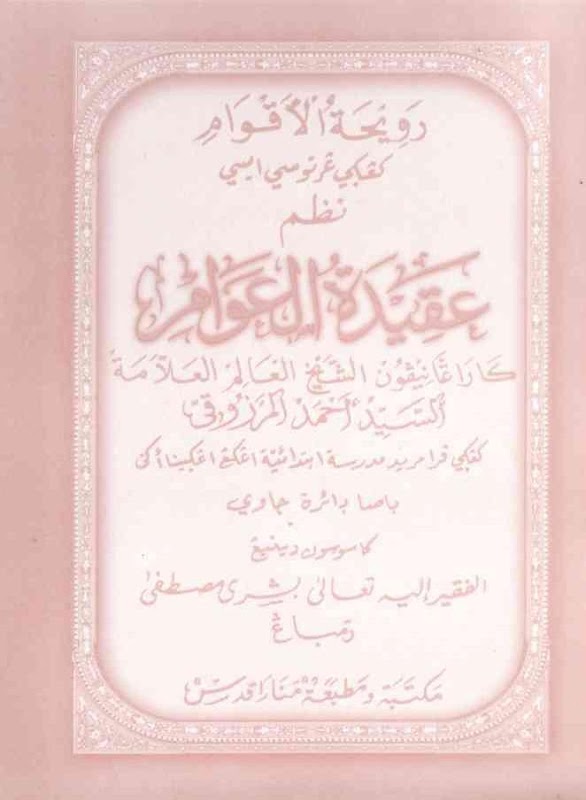 رَوِيْحَةُ الْأَقْوَامِ
كڠكي غرتوسي ايسي
نظم
عَقِيْدَةُ الْعَوَامِ
كَارَاغَانِيڤُونْ الشَّيْخِ الْعَالِمِ الْعَلَّامَةْ
اَلسَّيِّدْ أَحْمَدْ الْمَرْزُوقِيْ
كڠكي فرا مريد مدرسة ابتدائية
باصا دائرة جاوي
كاسوسون دينيڠ
الفقير إليه تعالى بشرى مصطفى
رمباڠ
مكتبة ومطبعة منارا قدس